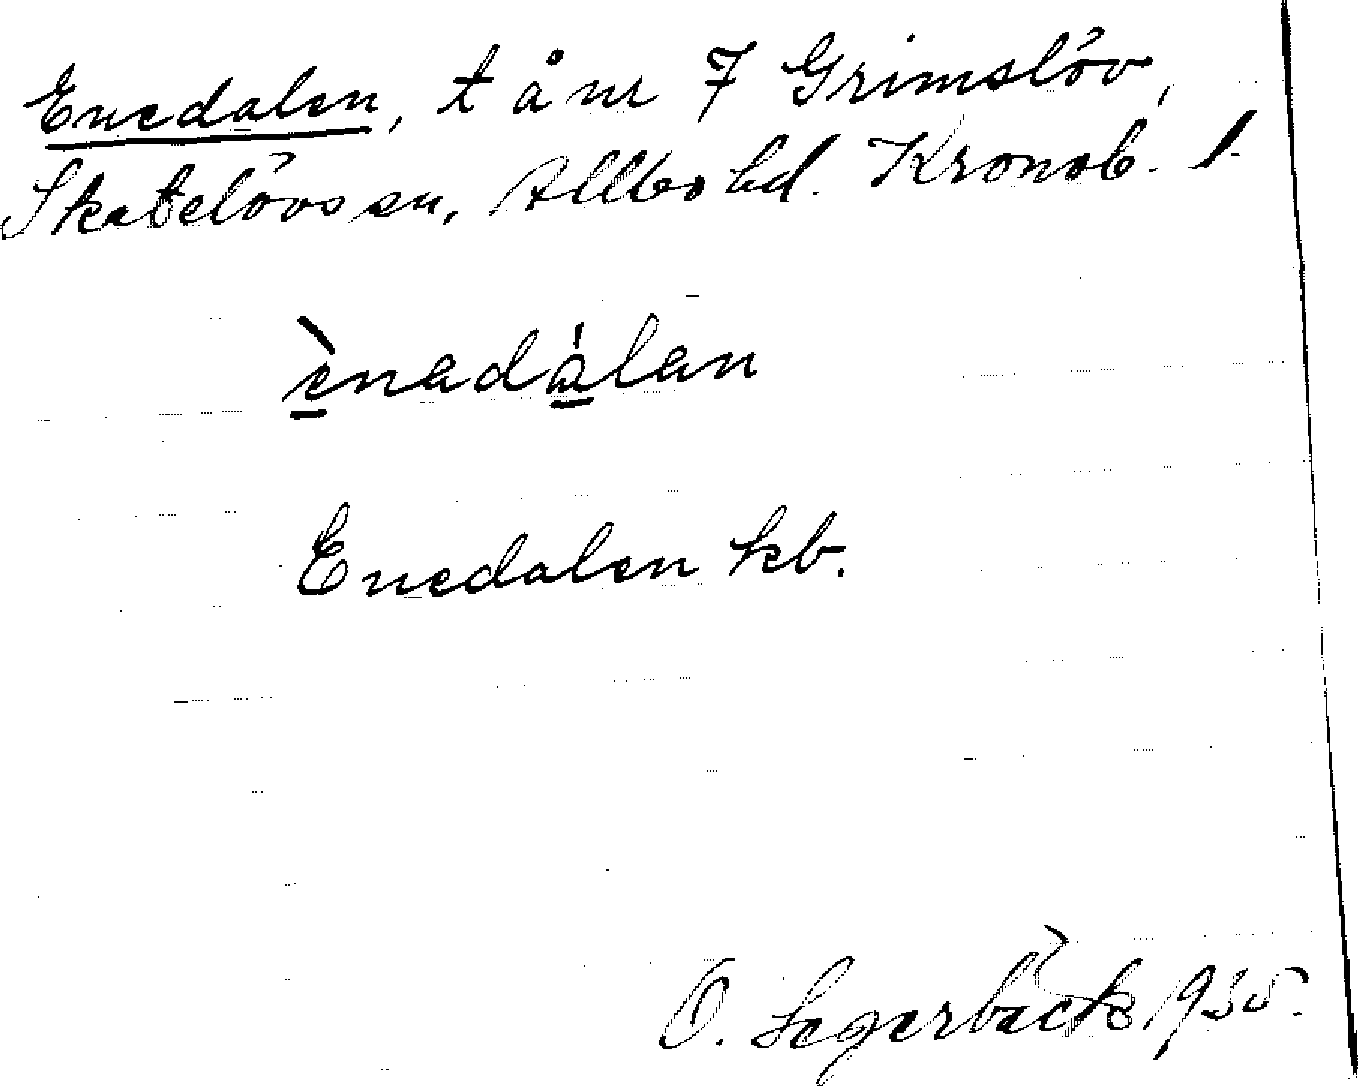 Enedalen, t å nr 7 Grimslöv,
Skatelövs sn, Allbo hd. Kronob. l.
ènadálan
Enedalen kb.
O. Segerbäck 1935.